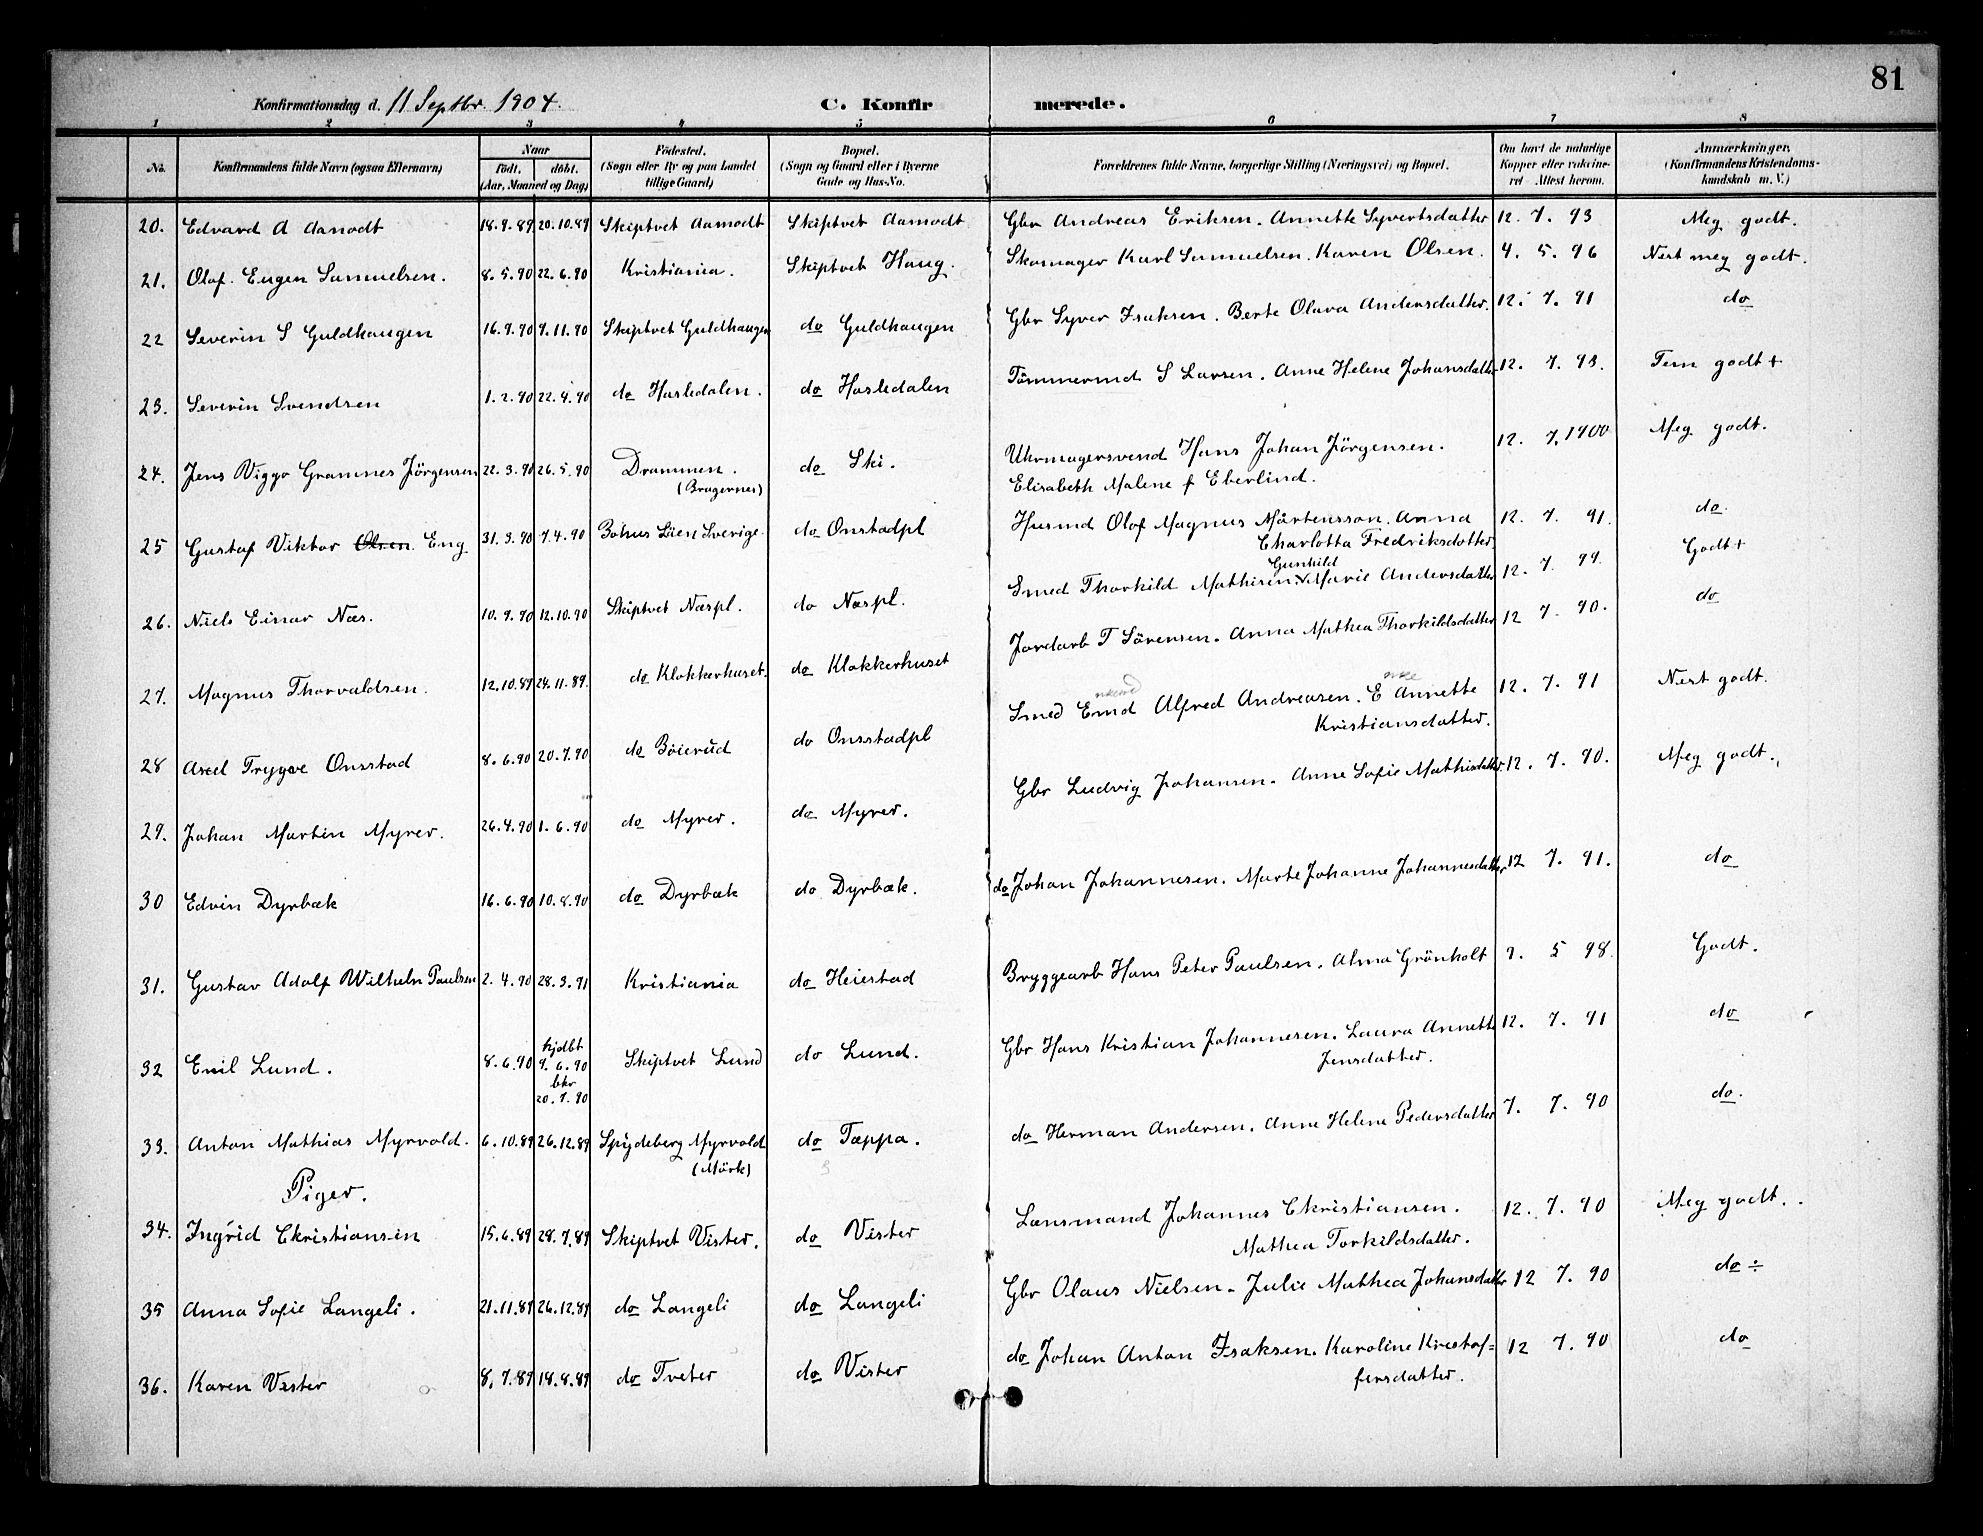 81
Konfirmationsdag d. 11 Septbr. 1904.
C. Konfirmerede.
1 2 3 4 5 6 7 8
No. Konfirmandens fulde Navn (ogsaa Efternavn) Naar født. døbt. (Aar, Maaned og Dag) Fødested. (Sogn eller By og paa Landet tillige Gaard) Bopæl. (Sogn og Gaard eller i Byerne Gade og Hus-No. Forældrenes fulde Navne, borgerlige Stilling (Næringsvei) og Bopæl. Om havt de naturlige Kopper eller vakcineret Attest herom. Anmærkninger. (Konfirmandens Kristendomskundskab m. V.)
20. Edvard A Aamodt 18.9.89 20.10.89 Skiptvet Aamodt Skiptvet Aamodt Gbr Andreas Eriksen. Annette Syvertsdatter 12. 7. 93 Meg godt.
21. Olaf Eugen Samuelsen. 8.5.90 22.6.90 Kristiania. Skiptvet Haug. Skomager Karl Samuelsen. Karen Olsen. 4. 5. 96 Næst meg godt.
22 Severin S Guldhaugen 16.9.90 9.11.90 Skiptvet Guldhaugen do Guldhaugen Gbr Syver Isaksen. Berte Olava Andersdatter. 12. 7. 91 do
23. Severin Svendsen 1.2.90 22.4.90 do Hasledalen. do Hasledalen Tömmermd S Larsen. Anne Helene Johansdatter 12. 7. 93. Tem godt +
24. Jens Viggo Gramnes Jörgensen 22.3.90 26.5.90 Drammen. (Bragernes) do Ski. Uhrmagersvend Hans Johan Jörgensen. 12. 7. 1900 Meg godt.
Elisabeth Malene f Eberlind.
25 Gustaf Viktor Olsen. Eng 31.3.90 7.4.90 Bohus Läen Sverige. do Onstadpl Husmd Olof Magnus Mårtensson. Anna 12. 7. 91. do.
Charlotta Fredriksdotter.
26. Niels Einar Næs. 10.9.90 12.10.90 Skiptvet Næspl. do Næspl. Smed Thorkild Mathisen Gunhild Marie Andersdatter 12. 7. 99. Godt +
27. Magnus Thorvaldsen. 12.10.89 24.11.89. do Klokkerhuset. do Klokkerhuset Jordarb T Sörensen. Anna Mathea Thorkildsdatter 12 7. 90. do
28 Axel Trygve Onsstad 8.6.90 20.7.90 do Böierud do Onsstadpl Smed Emd Alfred Andreasen. E Annette 12. 7. 91 Næst godt.
Kristiansdatter.
29. Johan Martin Myrer. 26.4.90 1.6.90 do Myrer. do Myrer. Gbr Ludvig Johansen. Anne Sofie Mathisdatter 12. 7. 90. Meg godt.
30 Edvin Dyrbæk 16.6.90 10.8.90 do Dyrbæk do Dyrbæk. do Johan Johannesen. Marte Johanne Johannesdatter 12 7. 91. do
31. Gustav Adolf Wilhelm Paulsen 2.4.90 28.3.91 Kristiania do Heiestad Bryggearb Hans Peter Paulsen. Alma Grönholt 9. 5 98. Godt.
32 Emil Lund. 8.6.90 hjdbt 9.6.90 bkr 20.7.90 Skiptvet Lund do Lund. Gbr Hans Kristian Johannesen. Laura Annette 12. 7. 91 do
Jensdatter.
33. Anton Mathias Myrvold. 6.10.89 26.12.89 Spydeberg Myrvold (Mörk) do Tæppa. do Herman Andersen. Anne Helene Pedersdatter 7. 7. 90 do.
Piger.
34. Ingrid Christiansen 15.6.89 28.7.89 Skiptvet Vister. do Vister Lensmand Johannes Christiansen. 12. 7. 90 Meg godt.
Mathea Torkildsdatter.
35 Anna Sofie Langeli. 21.11.89 26.12.89 do Langeli do Langeli Gbr Olaus Nielsen. Julie Mathea Johansdatter 12 7. 90 do ÷
36. Karen Vister 8.7.89 18.8.89 do Tveter do Vister do Johan Anton Isaksen. Karoline Kristof= 12 7. 90 do
fersdatter.